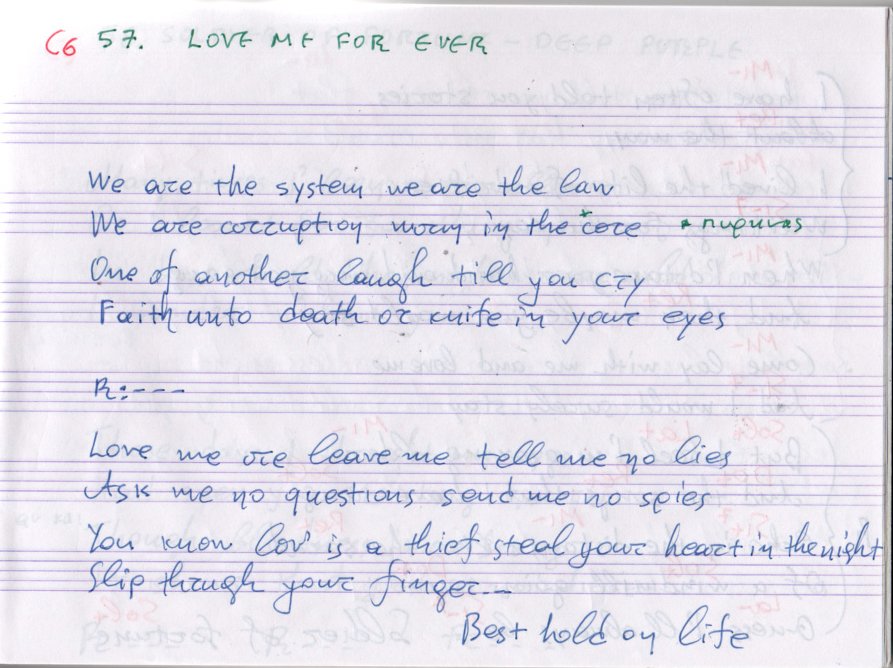 C6 57. LOVE ME FOR EVER
We are the system we are the law
We are corruption worm in the * core * nupuras
One of another laugh till you cry
Faith unto death or knife in your eyes
R:----
Love me ore leave me tell me no lies
Ask me no questions send me no spies
You know lov' is a thief steal your heart in the night
Slip through your finger...
Best hold on life